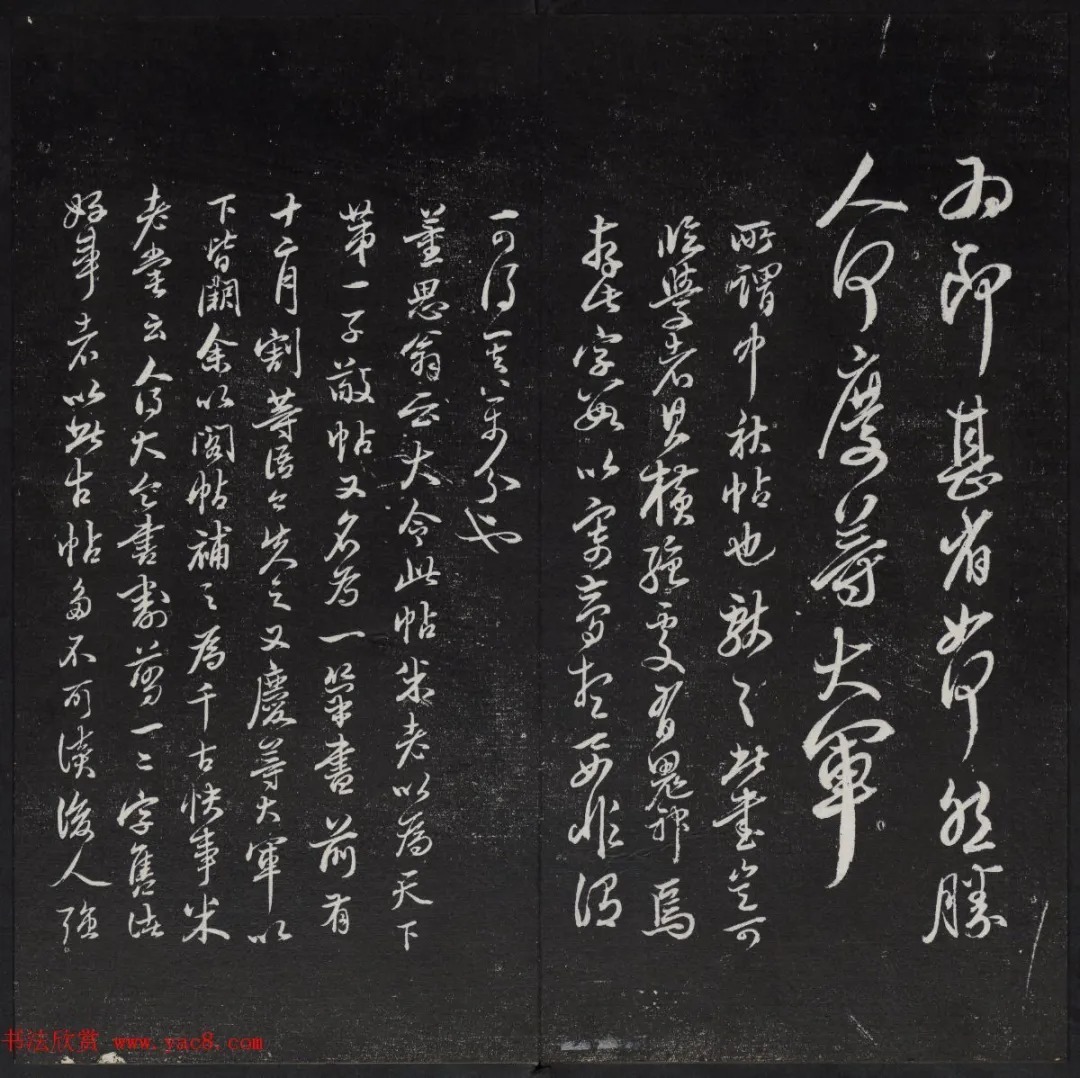 為即甚省如何然勝
人何慶等大軍
所謂中秋帖也獻之此書豈可
臨學者且橫處有鬼神焉
存此字以寄高想要非謂
一可得其萬分也
董思翁云大令此帖米老以為天下
第一子敬帖又名為一筆書前有
十二月割等語今失之又慶等大軍以
下皆闕余以閣帖補之為千古快事米
老嘗云人得大令書割剪一二字售諸
好事者以此古帖多不可讀後人強
书法欣赏 www.yac8.com